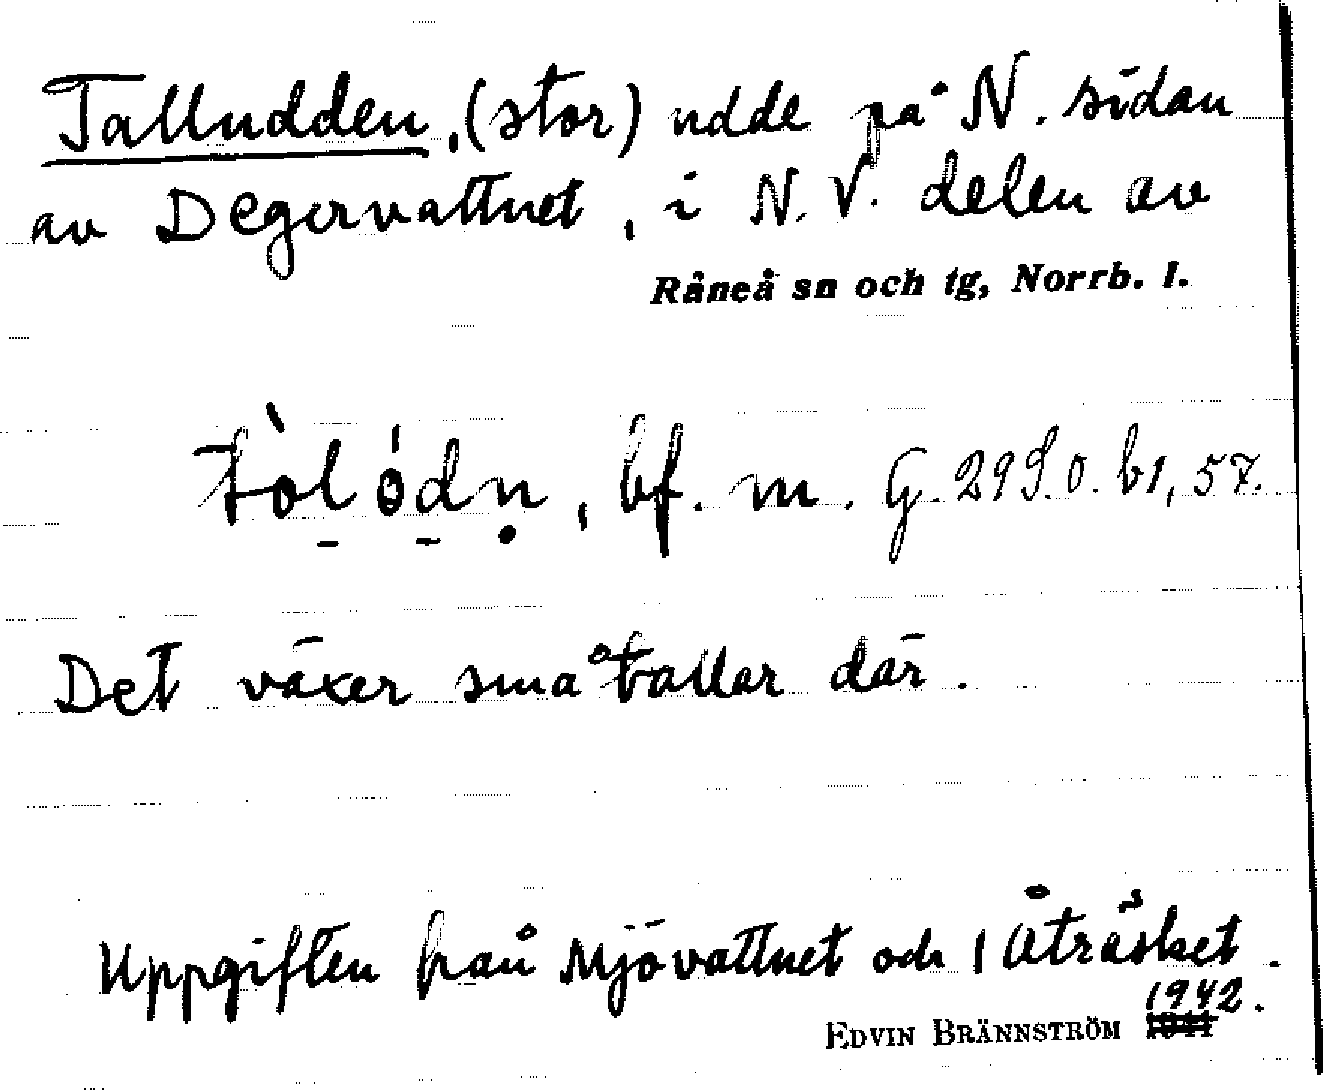 Talludden, (stor) udde på N. sidan
av Degervattnet, i N.V. delen av
Råneå sn och tg, Norrb. l.
tòl̠ ód̠ṇ, bf. m. G. 29 b1, 57.
Det växer småtallar där.
Uppgiften från Mjövattnet och Åträsket.
1942.
EDVIN BRÄNNSTRÖM 1941